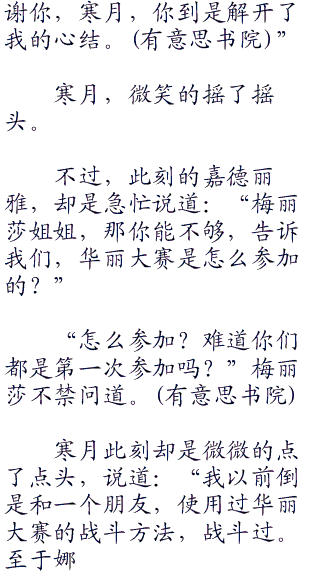 谢你，寒月，你到是解开了
我的心结。(有意思书院)”
寒月，微笑的摇了摇
头。
不过，此刻的嘉德丽
雅，却是急忙说道：“梅丽
莎姐姐，那你能不够，告诉
我们，华丽大赛是怎么参加
的？”
“怎么参加？难道你们
都是第一次参加吗？”梅丽
莎不禁问道。(有意思书院)
寒月此刻却是微微的点
了点头，说道：“我以前倒
是和一个朋友，使用过华丽
大赛的战斗方法，战斗过。
至于娜